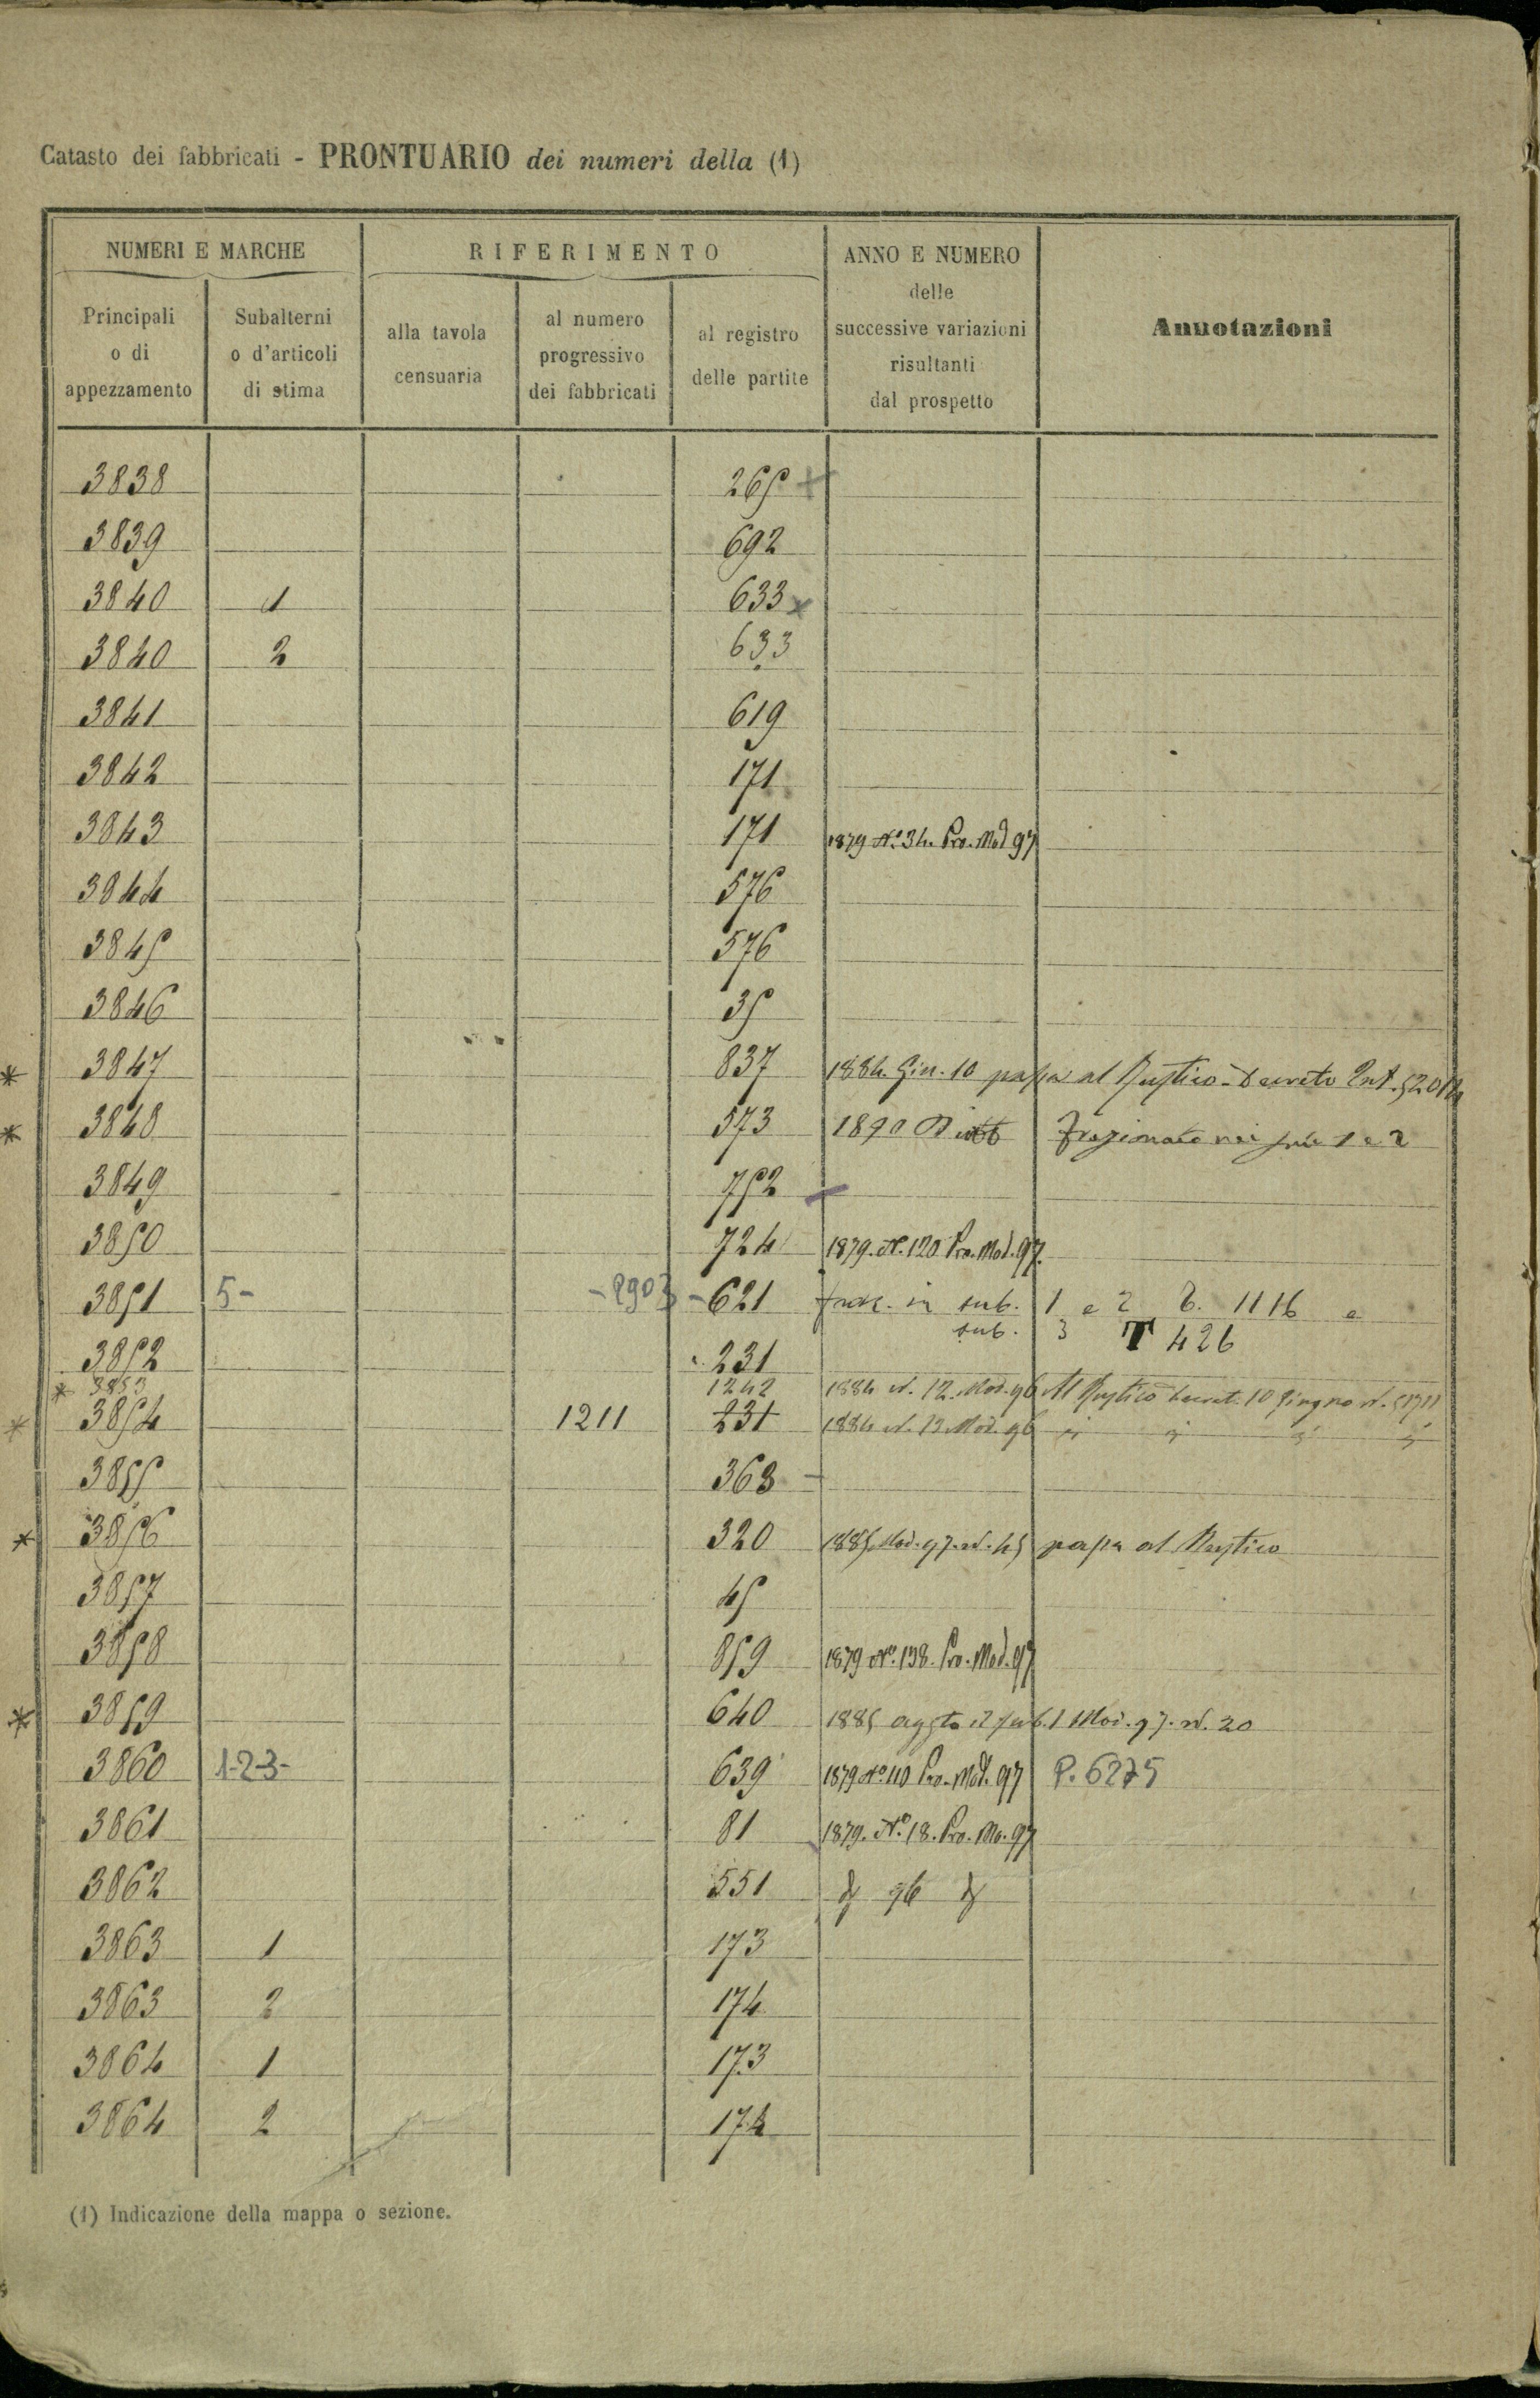 Catasto dei fabbricati - PRONTUARIO dei numeri della (1)
NUMERI E MARCHE
RIFERIMENTO
ANNO E NUMERO
delle
successive variazioni
risultanti
dal prospetto
Annotazioni
Principali
o di
appezzamento
Subalterni
o d'articoli
di stima
alla tavola
censuaria
al numero
progressivo
dei fabbricati
al registro
delle partite
3838 265 +
3839 692
3840 1 633 x
3840 2 633
3841 619
3842 171
3843 171 1879 N.º 34. Pro. Mod 97
3844 576
3845 576
3846 35
* 3847 837 1884. Giu. 10 passa al Rustico - Decreto Int.
* 3848 573 1890 frazionato nei sub 1 e 2
3849 752 -
3850 724 1879. N. 120 Pro. Mod. 97.
3851 5- -2903- 621 fraz. in sub. 1 e 2 P. 1116 e
sub. 3 T 426
3852 231
* 3853 1242 1884 N. 12. Mod. 96 Al Rustico Decret. 10 Giugno N.
* 3854 1211 231 1884 N. 13 Mod. 96 " " " "
3855 368 -
* 3856 320 1885 Mod. 97. N. 45 passa al Rustico
3857 45
3858 859 1879 Nº. 138. Pro. Mod. 97
* 3859 640 1885 aggto il sub. 1 Mod. 97. N. 20
3860 1-2-3- 639 1879 Nº. 110 Pro. Mod. 97 P. 6275
3861 81 1879. Nº. 18. Pro. Mo. 97
3862 551 96
3863 1 173
3863 2 174
3864 1 173
3864 2 174
(1) Indicazione della mappa o sezione.